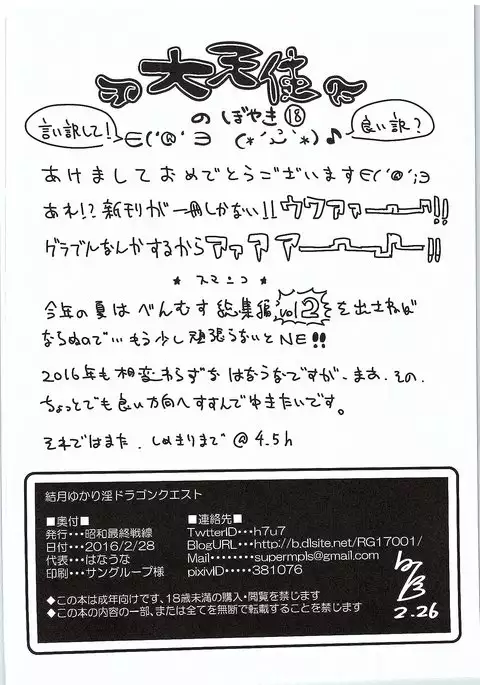 大天使
のぼやき⑱
言い訳して!
∈('@'∋ (*´ω`*)♪
良い訳?
あけましておめでとうございます∈('@';∋
あれ!?新刊が一冊しかない!!ウワァァーーー!!
グラブルなんかするからアァアァーーー!!
*スマニコ*
今年の夏はべんむす総集編vol2を出さねば
ならぬので…もう少し頑張らないとNE!!
2016年も相変わらずなはなうなですが、まあ、その、
ちょっとでも良い方向へすすんでゆきたいです。
それではまた。しめきりまで@4.5h
結月ゆかり淫ドラゴンクエスト
■奥付
発行・・・昭和最終戦線
日付・・・2016/2/28
代表・・・はなうな
印刷・・・サングループ様
■連絡先
TwtterID・・・h7u7
BlogURL・・・http://b.dlsite.net/RG17001/
Mail・・・・・・・supermpls@gmail.com
pixivID・・・・・381076
◆この本は成年向けです、18歳未満の購入・閲覧を禁じます
◆この本の内容の一部、または全てを無断で転載することを禁じます
2.26